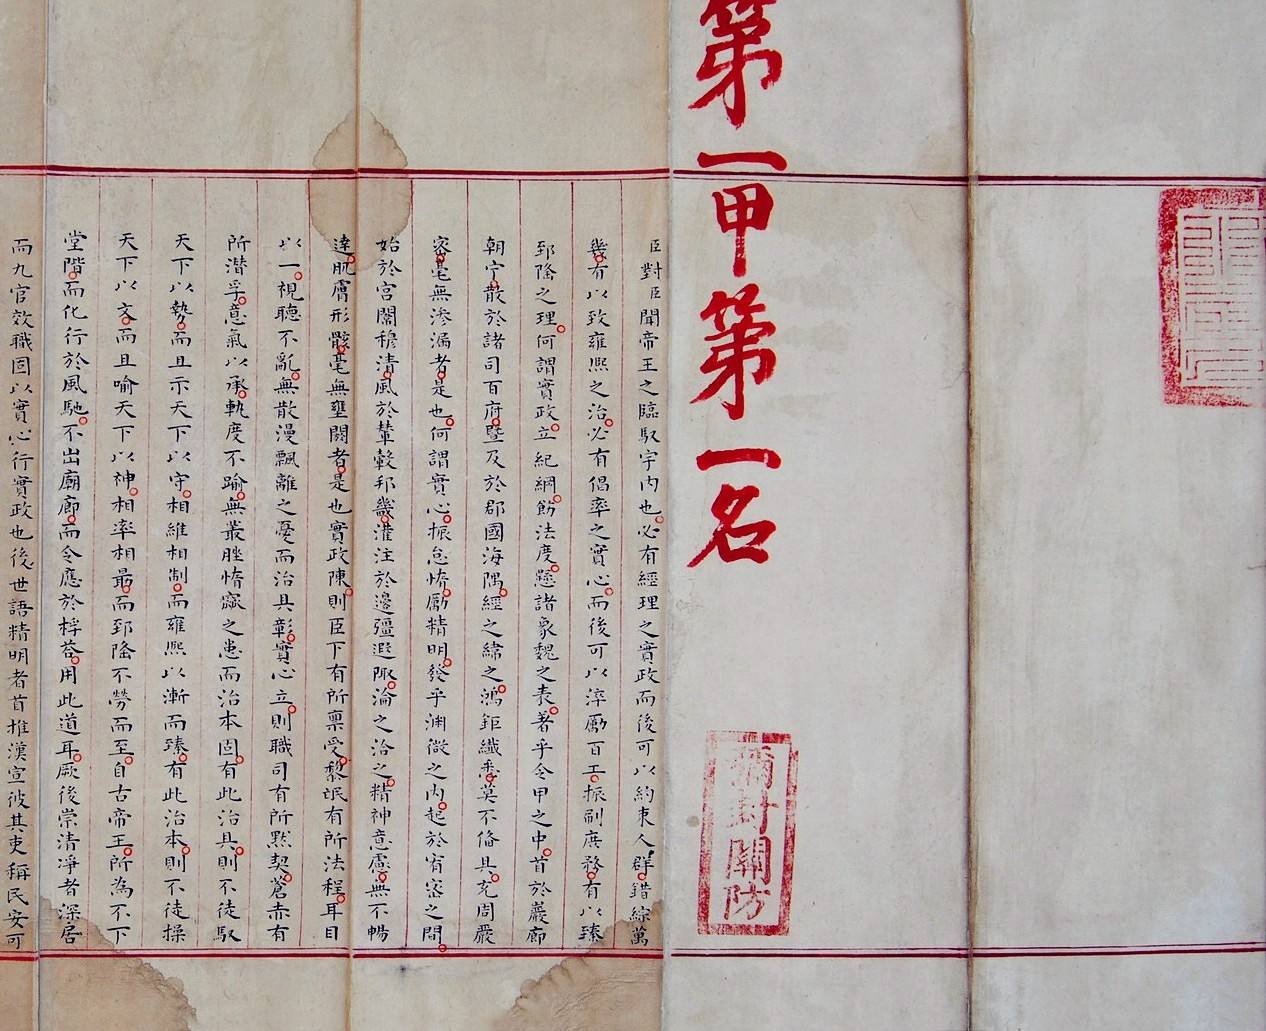 第一甲第一名
彌封關防
臣對臣聞帝王之臨馭宇內也必有經理之實政而後可以約束人群錯綜萬
幾有以致雍熙之治必有倡率之實心而後可以淬勵百工振刷庶務有以臻
郅隆之理何謂實政立紀綱飭法度懸諸象魏之表著乎令甲之中首於巖廊
朝宁散於諸司百府暨及於郡國海隅經之緯之鴻鉅纖悉莫不備具充周嚴
密毫無滲漏者是也何謂實心振怠惰勵精明發乎淵微之內起於宥密之間
始於宮闈穆清風於輦轂邦畿灌注於邊疆遐陬淪之洽之精神意慮無不暢
達肌膚形骸毫無壅閼者是也實政陳則臣下有所稟受黎氓有所法程耳目
以一視聽不亂無散漫飄離之憂而治具彰實心立則職司有所默契蒼赤有
所潛孚意氣以承軌度不踰無叢脞惰窳之患而治本固有此治具則不徒馭
天下以勢而且示天下以守相維相制而雍熙以漸而臻有此治本則不徒操
天下以文而且喻天下以神相率相最而郅隆不勞而至自古帝王所為不下
堂階而化行於風馳不出廟廊而令應於桴荅用此道耳厥後崇清淨者深居
而九官效職固以實心行實政也後世語精明者首推漢宣彼其吏稱民安可